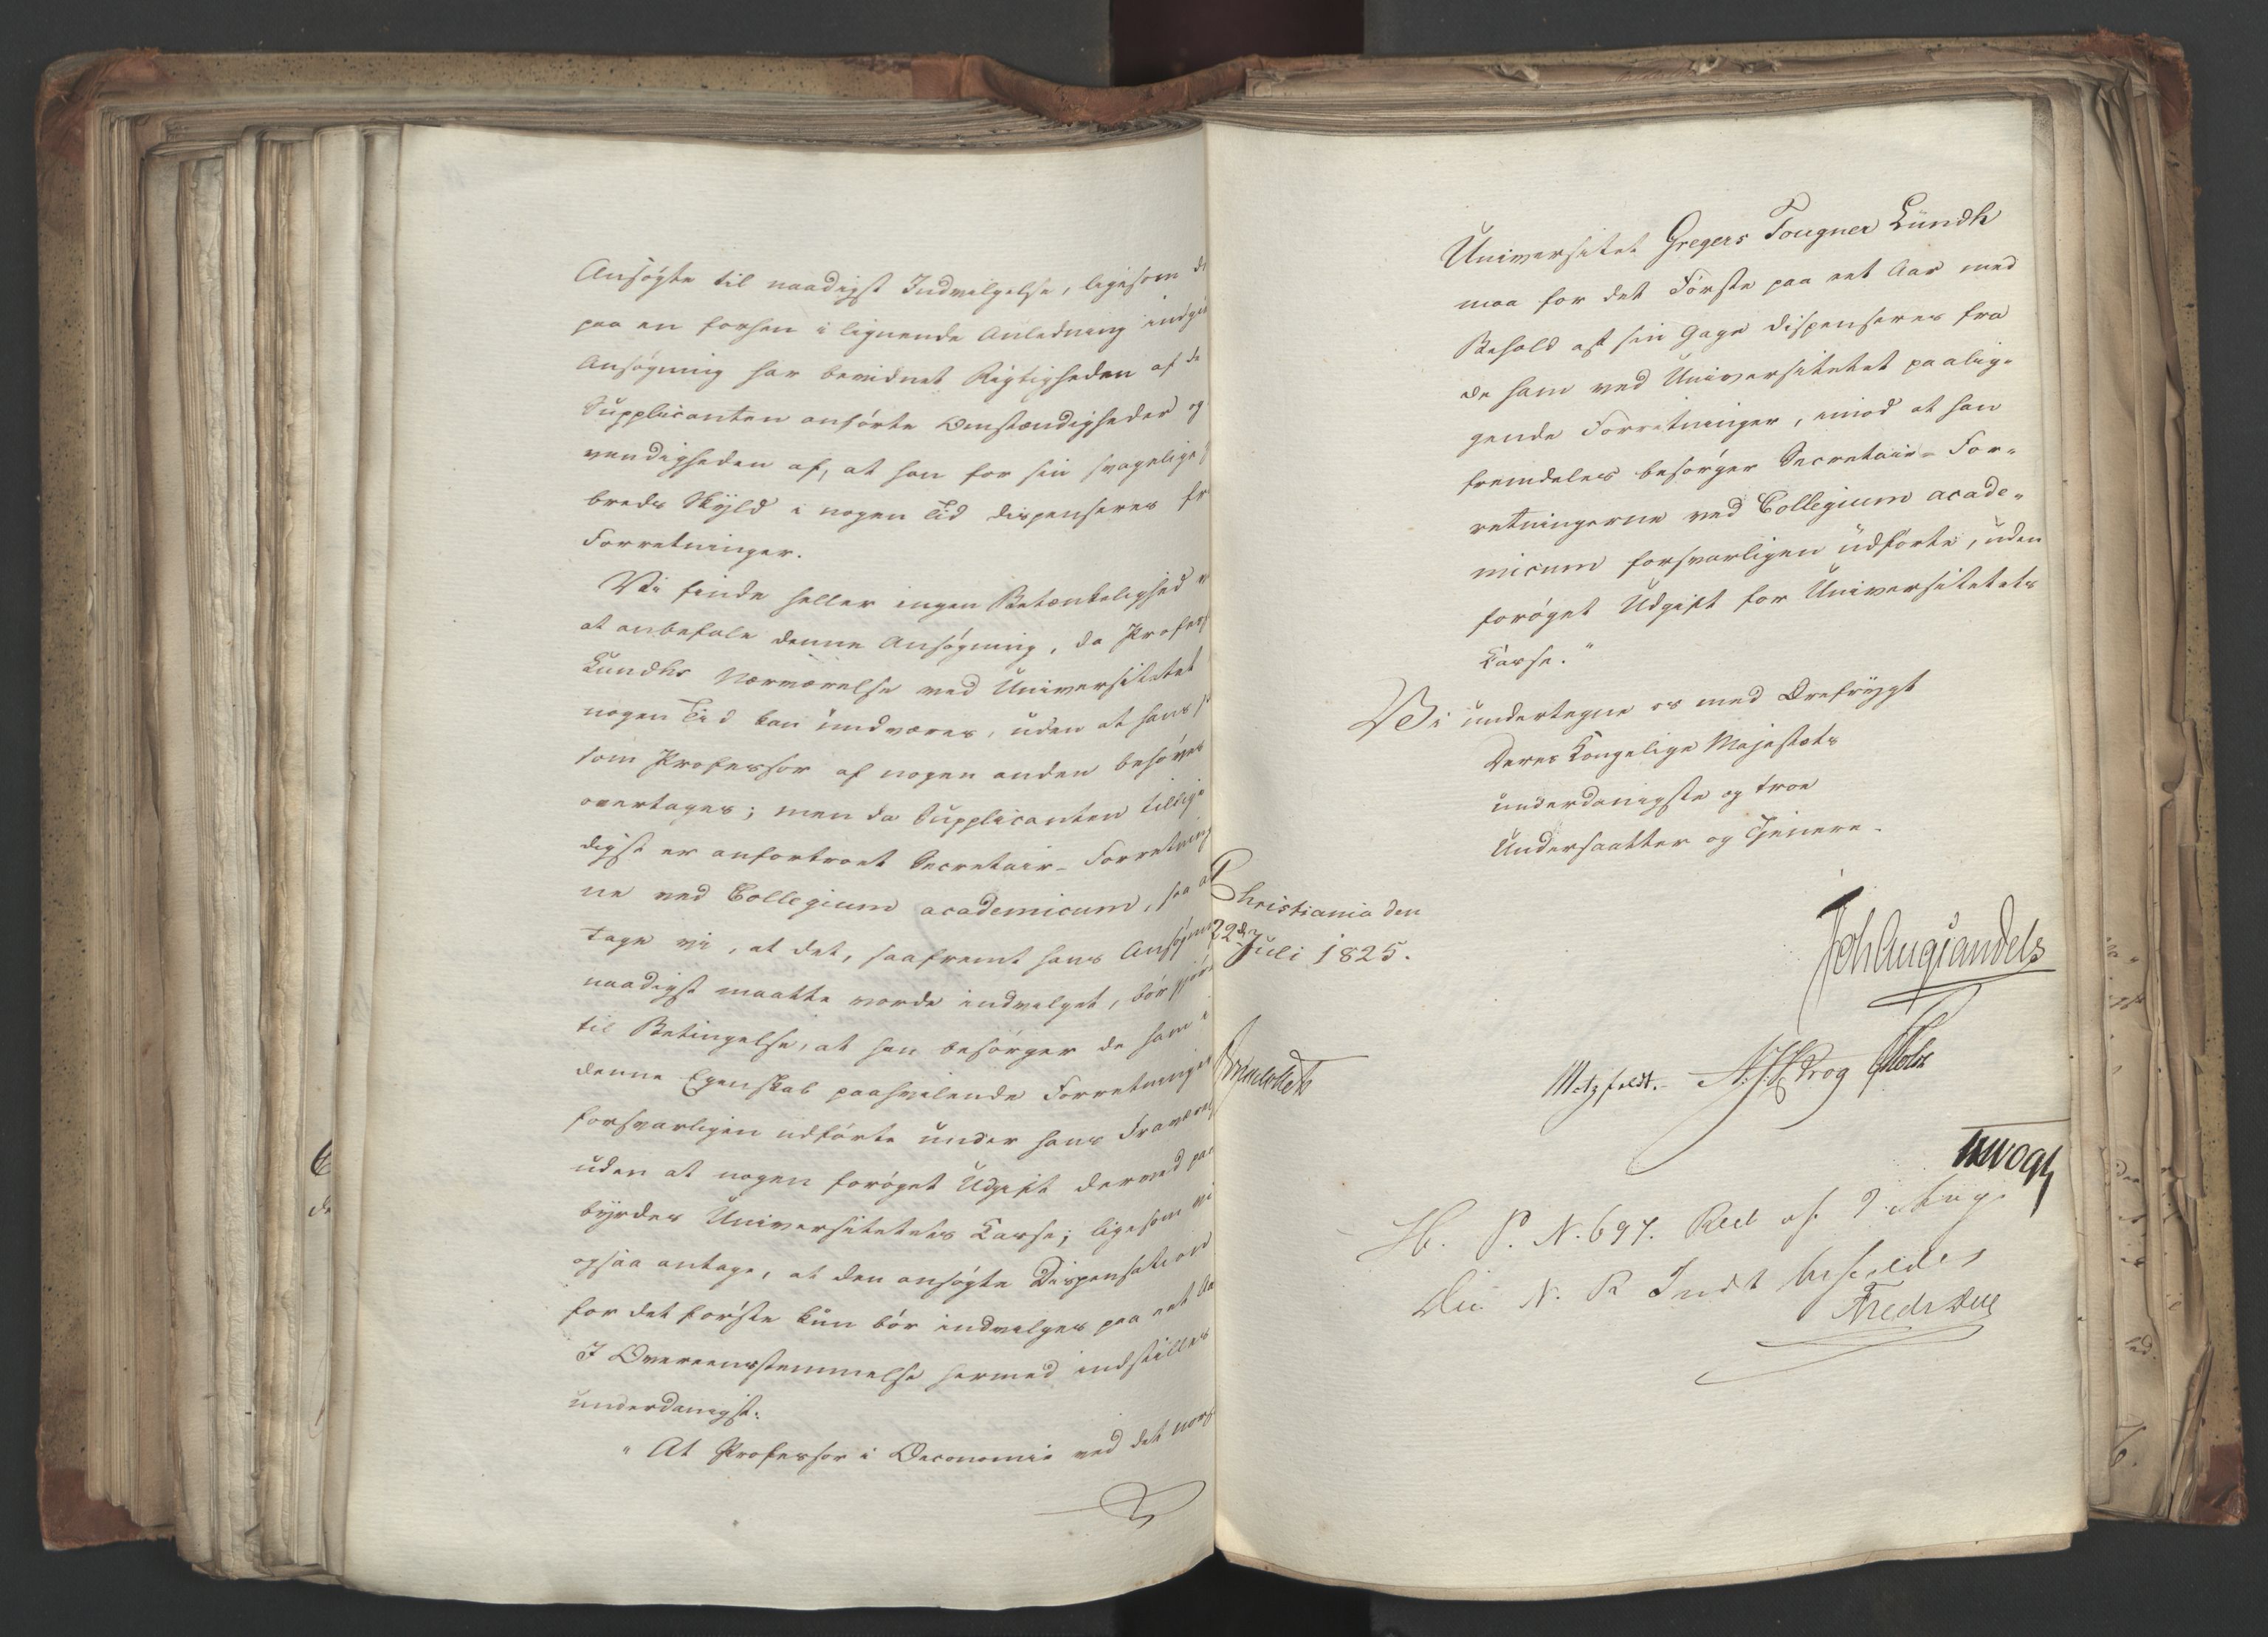 Ansøgte til naadigst Indvilgelse, ligesom d
paa en forhen i lignende Anledning indgi
Ansøgning har bevidnet Rigtigheden af de
Supplicanten anførte Omstændigheder og
vendigheden af, at han for sin svagelige
breds Skyld i nogen Tid dispenseres fr
Forretninger.
Vi finde heller ingen Betænkelighed v
at anbefale denne Ansøgning, da Profess
Lundhs Nærværelse ved Universitetet
nogen Tid kan undværes, uden at hans
som Professor af nogen anden behøves
overtages; men da Supplicanten tillige
digst er anfortroet Secretair-Forretning
ne ved Collegium academicum, saa an
tage vi, at det, saafremt hans Ansøgni
naadigst maatte vorde indvilget, bør gjør
til Betingelse, at han besørger de ham i
denne Egenskab paahvilende Forretninger
forsvarligen udførte under hans Fravær
uden at nogen forøget Udgift derved paa
byrdes Universitetets Casse; ligesom vi
ogsaa antage, at den ansøgte Dispensation
for det første kun bør indvilges paa eet Aa
I Overeensstemmelse hermed indstilles
underdanigst:
"At Professor i Oeconomie ved det nors
Universitet Gregers Fougner Lundh
maa for det Første paa eet Aar med
Behold af sin Gage dispenseres fra
de ham ved Universitetet paalig-
gende Forretninger, imod at han
fremdeles besørger Secretair-For-
retningerne ved Collegium acade-
micum forsvarligen udførte, uden
forøget Udgift for Universitetets
Casse."
Vi undertegne os med Ærefrygt
Deres Kongelige Majestæts
underdanigste og troe
Undersaatter og Tjenere.
Christiania den
22de Juli 1825.
Joh Aug Sandels
Motzfeldt. Krog Holst
Vogt
H. P. N. 697.
N. R Indst bifaldes
Fredr Due